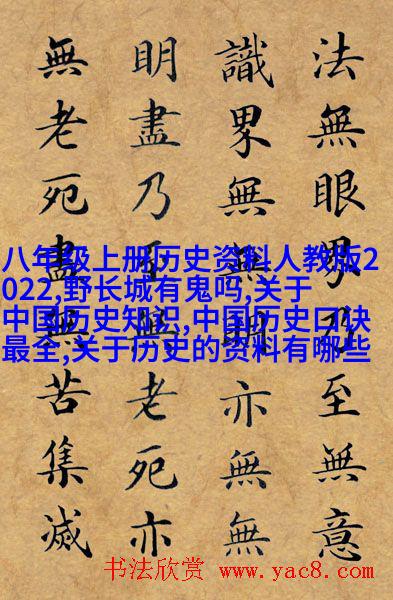 法無眼界乃至無意
識界無無明亦無無
明盡乃至無老死亦
無老死盡無苦集滅
八年级上册历史资料人教版2
022,野长城有鬼吗,关于
中国历史知识,中国历史口诀
最全,关于历史的资料有哪些
书法欣赏 www.yac8.com